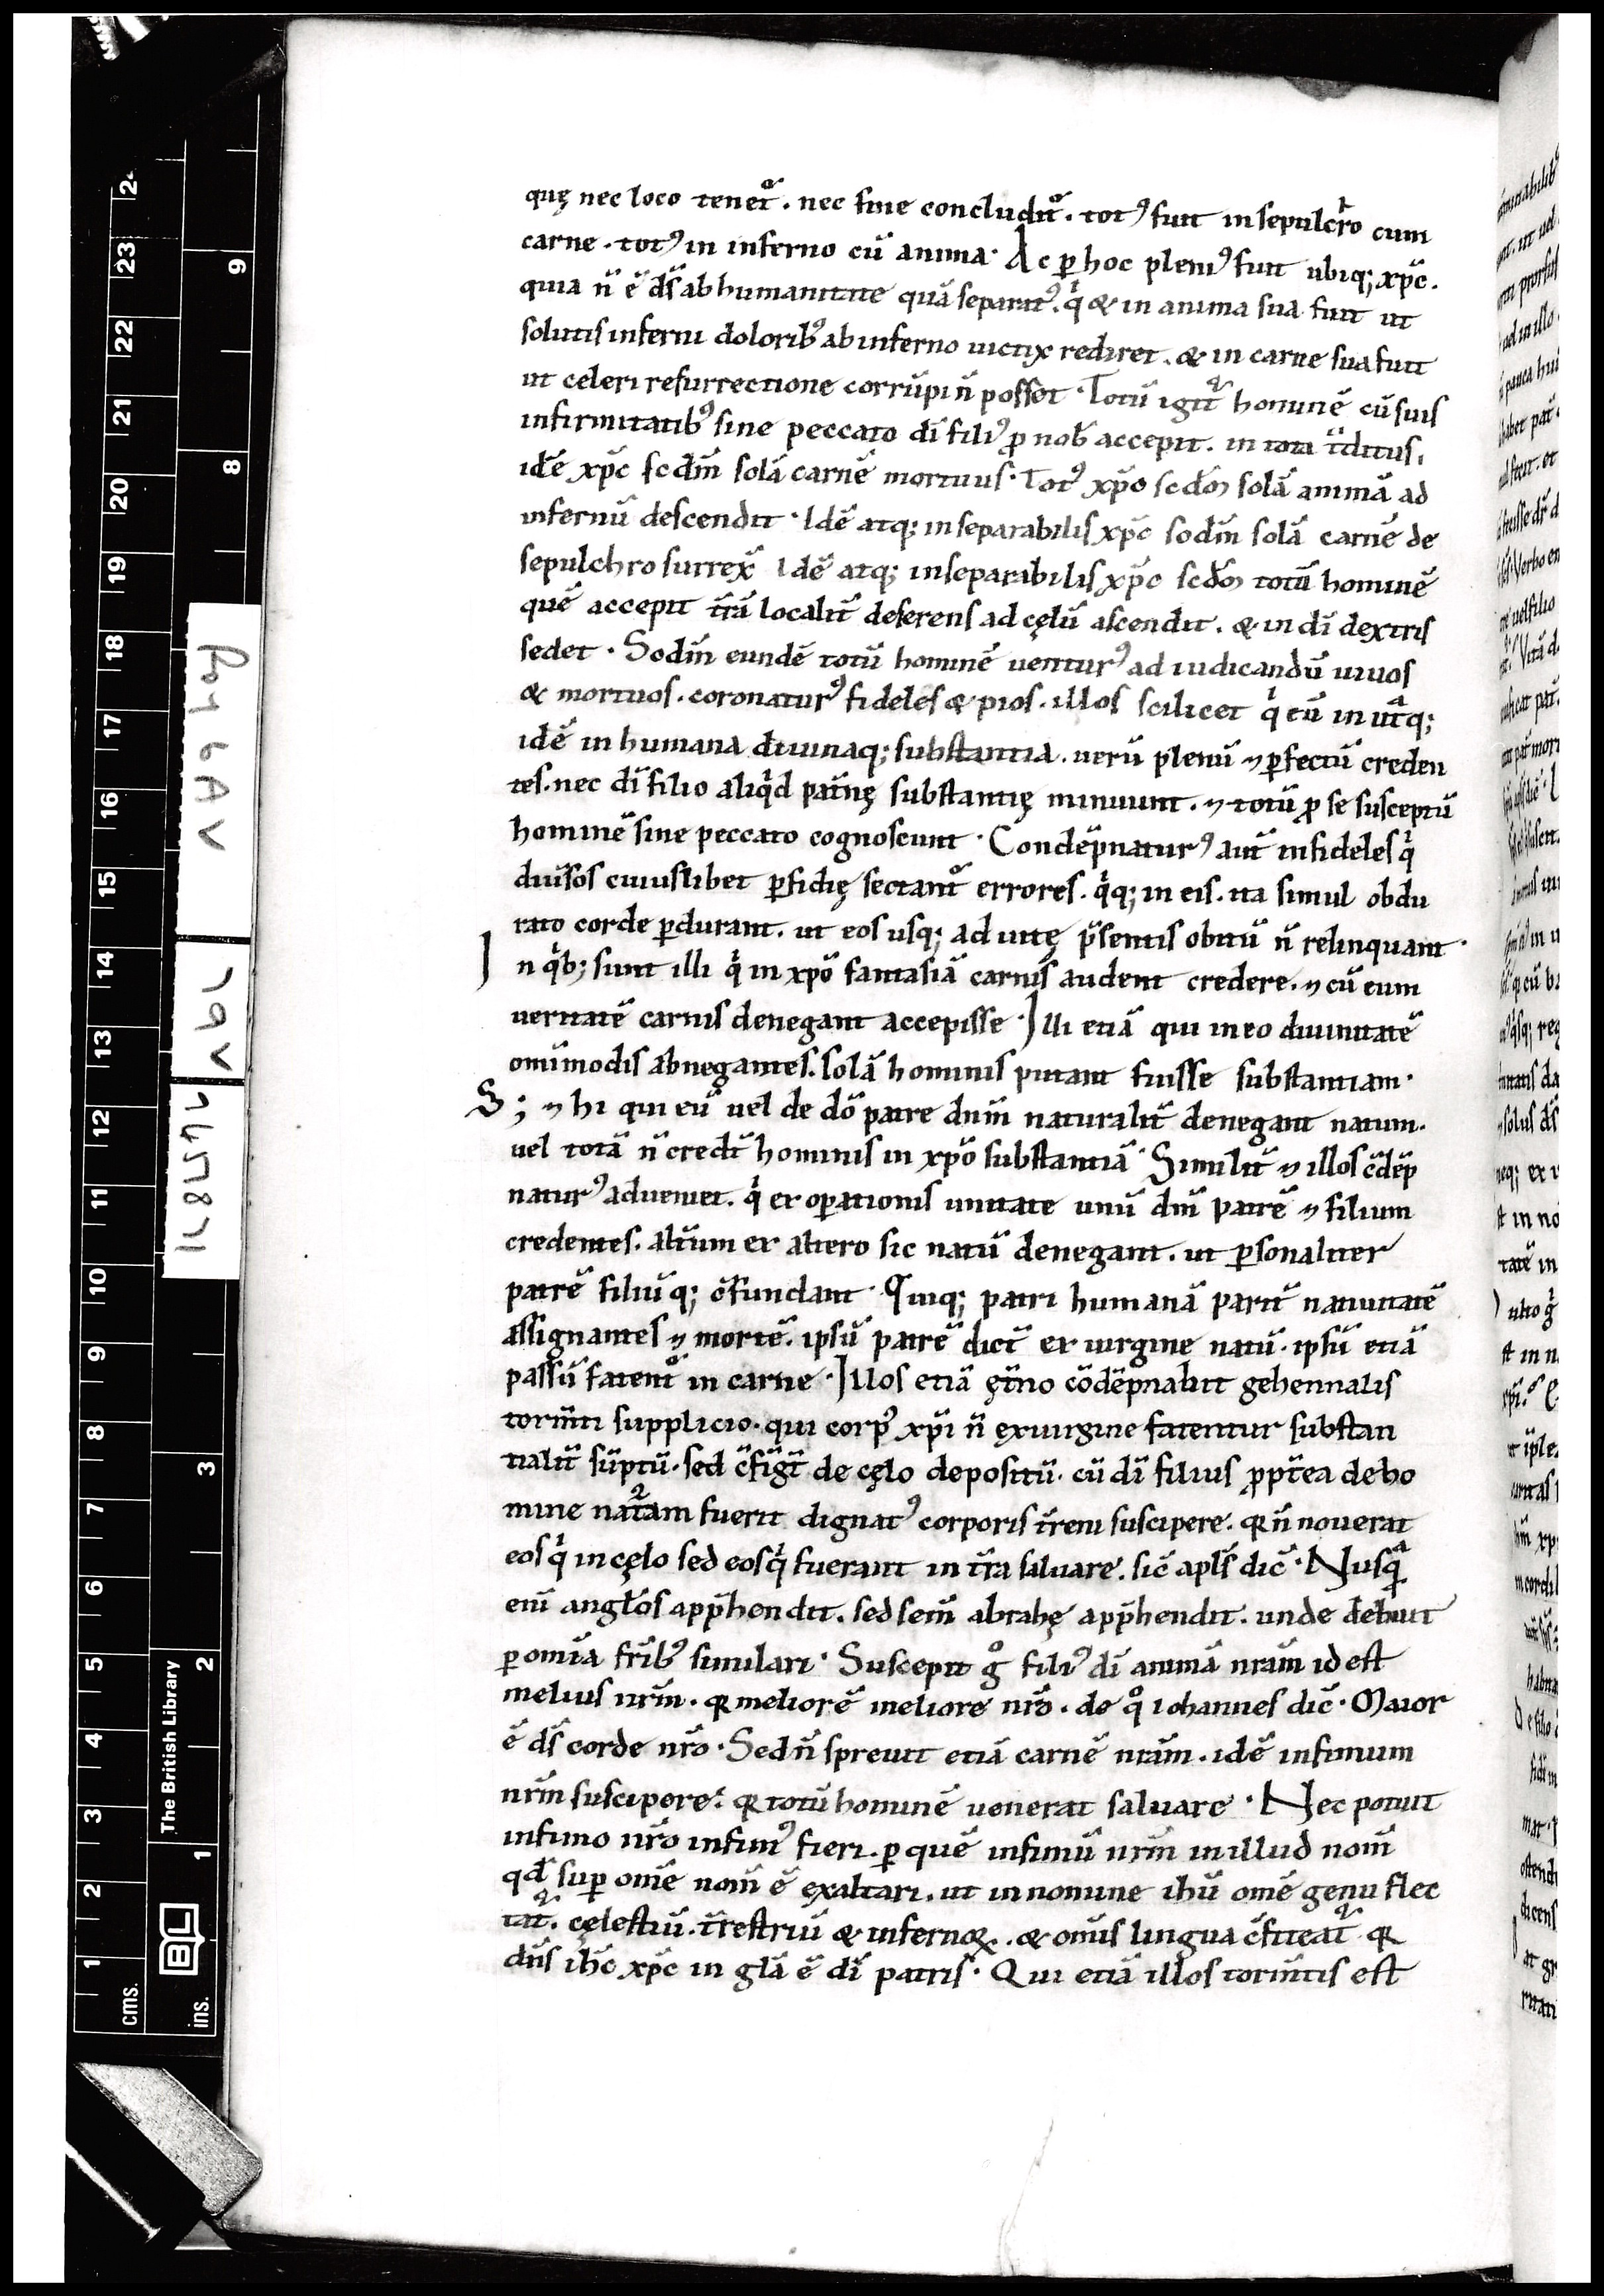 quę nec loco tenet᷑. nec fine concludit᷑. totꝰ fuit in sepulcͥro cum
carne. totꝰ in inferno cū anima. Ac ꝑ hoc pleniꝰ fuit ubiq; xp̄c.
quia n̄ ē ds̄ ab humanitate quā separatꝰ. qͥ & in anima sua fuit ut
solutis inferni doloribꝰ ab inferno uictix rediret. & in carne sua fuit
ut celeri resurrectione corrūpi n̄ posset. Totū igit᷑ hominē cū suis
infirmitatibꝰ sine peccato dī filiꝰ ꝓ nob̄ accepit.
idē xp̄c scdm̄ solā carnē mortuus. Totꝰ xp̄c scdm̄ solā animā ad
infernū descendit. Idē atq; inseparabilis xp̄c scdm̄ solā carnē de
sepulchro surrex̄ Idē atq; inseparabilis xp̄c scdm̄ totū hominē
quē accepit tr̄ā localit̄ deserens ad cęlū ascendit. & in dī dextris
sedet. Scdm̄ eundē totū hominē uenturꝰ ad iudicandū uiuos
& mortuos. coronaturꝰ fideles & pios. illos scilicet qͥ eū in utᷓq;
idē in humana diuinaq; substantia. uerū plenū ⁊ ꝑfectū creden
tes. nec dī filio aliqͥd pat̄nę substantię minuunt. ⁊ totū ꝓ se susceptū
hominē sine peccato cognoscunt. Condēpnaturꝰ aut̄ infideles qͥ
diuīsos cuiuslibet ꝑfidię sectant᷑ errores. qͥq; in eis. ita simul obdu
rato corde ꝑdurant. ut eos usq; ad uitę p̄sentis obitū n̄ relinquant.
In qͥb; sunt illi qͥ in xp̄o fantasiā carnis audent credere. ⁊ cū eum
ueritatē carnis denegant accepisse. Illi etiā qui in eo diuinitatē
omīmodis abnegantes. solā hominis putant fuisse substantiam.
S; ⁊ hi qui eū uel de dō patre dnm̄ naturalit̄ denegant natum.
uel totā n̄ credt̄ hominis in xp̄o substantiā. Similit̄ ⁊ illos c̄dēp
naturꝰ adueniet. qͥ ex oꝑationis unitate unū dm̄ patrē ⁊ filium
credentes. alt̄um ex altero sic natū denegant. ut ꝑsonaliter
patrē filiūq; c̄fundant. Quiq; patri humanā parit̄ natiuitatē
assignantes ⁊ mortē. ipsū patrē dict̄ ex uirgine natū. ipsū etiā
passū fatent᷑ in carne. Illos etiā ęt̄no cōdēpnabit gehennalis
torm̄ti supplicio. qui corpꝰ xp̄i n̄ ex uirgine fatentur substan
tialit̄ sūptū. sed c̄figt̄ de cęlo depositū. cū dī filius ꝓpt̄ea de ho
mine nat᷑am fuerit dignatꝰ corporis tr̄eni suscipere. qꝛ n̄ nouerat
eos qͥ in cęlo sed eos qͥ fuerant in tr̄a saluare. sic̄ apl̄s dic̄. Nusqᷓ
enī anglos app̄hendit. sed sem̄ abrahę app̄hendit. unde debuit
ꝑ omīa frīb; similari. Suscepit gͦ filiꝰ dī animā nrām id est
melius nrm̄. qꝛ meliorē meliore nrō. de qͦ iohannes dic̄. Maior
ē ds̄ corde nrō. Sed n̄ spreuit etiā carnē nrām. idē infimum
nrm̄ suscipere. qꝛ totū hominē uenerat saluare. Nec potuit
infimo nrō infimꝰ fieri. ꝑ quē infimū nrm̄ in illud nom̄
qd̄ suꝑ omē nom̄ ē exaltari. ut in nomine ihū omē genu flec
tat᷑. cęlestiū. tr̄estriū & infernoꝝ. & omīs lingua c̄fiteat᷑ qꝛ
dn̄s ihc̄ xp̄c in glā ē dī patris. Qui etiā illos torm̄tis est
The British Library
BL
cms.
ins.